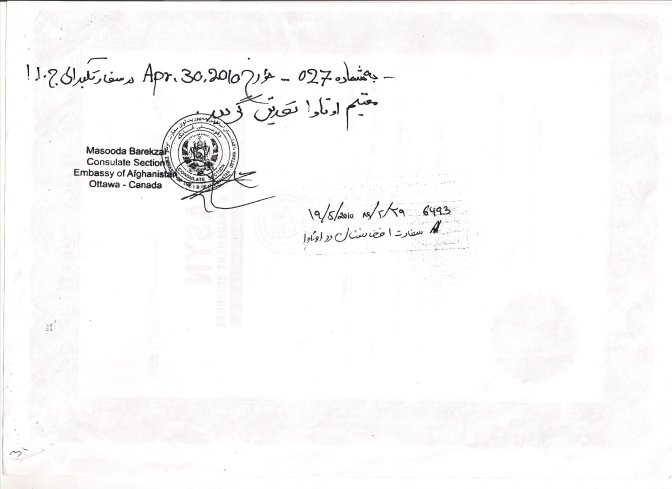 - به شماره 027 - مؤرخ Apr.30.2010 در سفارت کبرای ج.ا.ا
مقیم اوتاوا تصدیق گردید.
Masooda Barekzai
Consulate Section
Embassy of Afghanistan
Ottawa - Canada
CONSULATE
6493 ۸۹/۲/۲۹ ۱۹/5/2010
سفارت افغانستان در اوتاوا